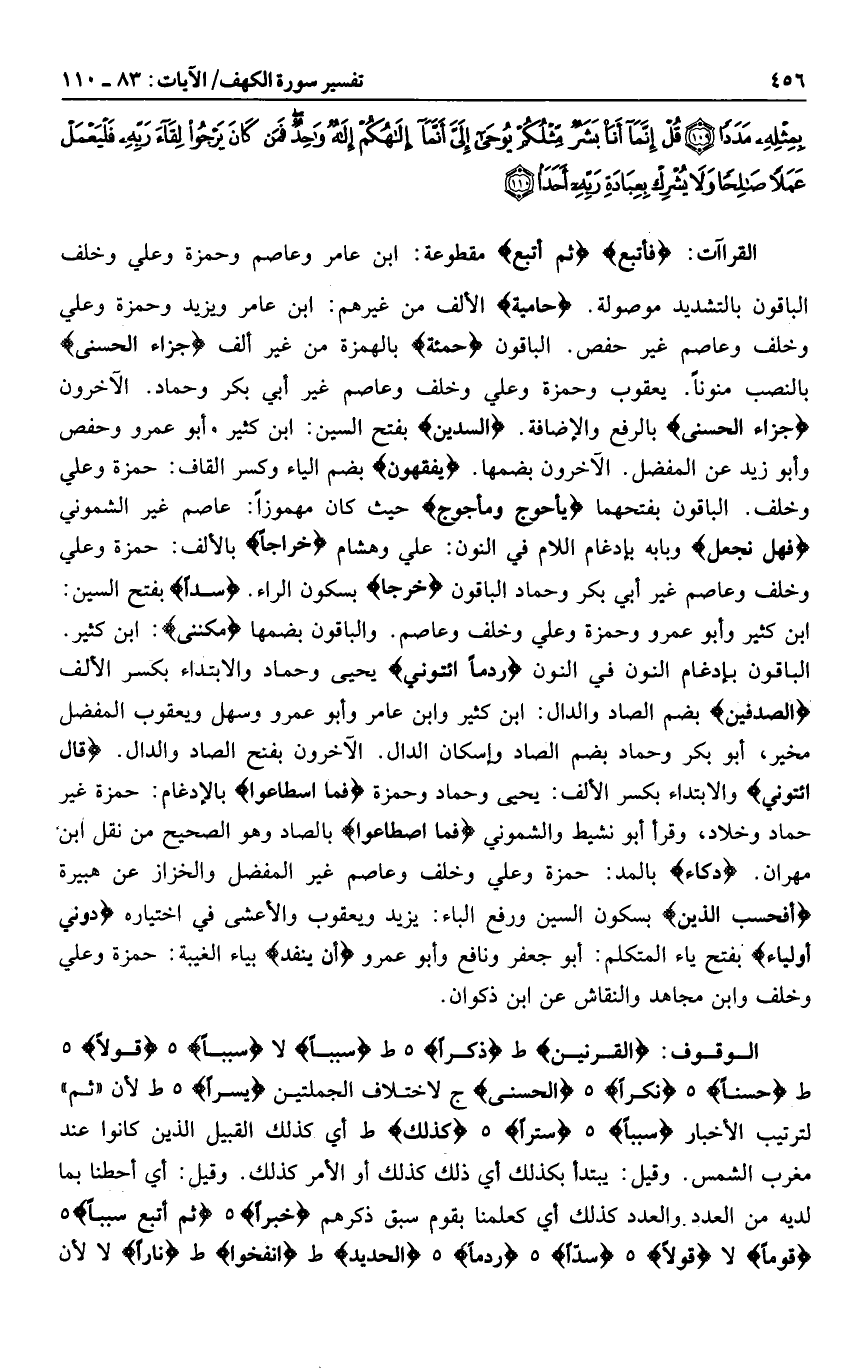 ٤٥٦ تفسير سورة الكهف/ الآيات: ٨٣ ـ ١١٠
بِمِثْلِهِۦ مَدَدًا ﴿١٠٩﴾ قُلْ إِنَّمَآ أَنَا۠ بَشَرٌ مِّثْلُكُمْ يُوحَىٰٓ إِلَىَّ أَنَّمَآ إِلَٰهُكُمْ إِلَٰهٌ وَٰحِدٌ ۖ فَمَن كَانَ يَرْجُوا۟ لِقَآءَ رَبِّهِۦ فَلْيَعْمَلْ
عَمَلًا صَٰلِحًا وَلَا يُشْرِكْ بِعِبَادَةِ رَبِّهِۦٓ أَحَدًۢا ﴿١١٠﴾
القراآت: ﴿فأتبع﴾ ﴿ثم أتبع﴾ مقطوعة: ابن عامر وعاصم وحمزة وعلي وخلف
الباقون بالتشديد موصولة. ﴿حامية﴾ الألف من غيرهم: ابن عامر ويزيد وحمزة وعلي
وخلف وعاصم غير حفص. الباقون ﴿حمئة﴾ بالهمزة من غير ألف ﴿جزاء الحسنى﴾
بالنصب منوناً. يعقوب وحمزة وعلي وخلف وعاصم غير أبي بكر وحماد. الآخرون
﴿جزاء الحسنى﴾ بالرفع والإضافة. ﴿السدين﴾ بفتح السين: ابن كثير ٠أبو عمرو وحفص
وأبو زيد عن المفضل. الآخرون بضمها. ﴿يفقهون﴾ بضم الياء وكسر القاف: حمزة وعلي
وخلف. الباقون بفتحهما ﴿يأجوج ومأجوج﴾ حيث كان مهموزاً: عاصم غير الشموني
﴿فهل نجعل﴾ وبابه بإدغام اللام في النون: علي وهشام ﴿خراجاً﴾ بالألف: حمزة وعلي
وخلف وعاصم غير أبي بكر وحماد الباقون ﴿خرجا﴾ بسكون الراء. ﴿سداً﴾ بفتح السين:
ابن كثير وأبو عمرو وحمزة وعلي وخلف وعاصم. والباقون بضمها ﴿مكننى﴾: ابن كثير.
الباقون بإدغام النون في النون ﴿ردماً ائتوني﴾ يحيى وحماد والابتداء بكسر الألف
﴿الصدفين﴾ بضم الصاد والدال: ابن كثير وابن عامر وأبو عمرو وسهل ويعقوب المفضل
مخير، أبو بكر وحماد بضم الصاد وإسكان الدال. الآخرون بفتح الصاد والدال. ﴿قال
ائتوني﴾ والابتداء بكسر الألف: يحيى وحماد وحمزة ﴿فما اسطاعوا﴾ بالإدغام: حمزة غير
حماد وخلاد، وقرأ أبو نشيط والشموني ﴿فما اصطاعوا﴾ بالصاد وهو الصحيح من نقل ابن
مهران. ﴿دكاء﴾ بالمد: حمزة وعلي وخلف وعاصم غير المفضل والخزاز عن هبيرة
﴿أفحسب الذين﴾ بسكون السين ورفع الباء: يزيد ويعقوب والأعشى في اختياره ﴿دوني
أولياء﴾ بفتح ياء المتكلم: أبو جعفر ونافع وأبو عمرو ﴿أن ينفد﴾ بياء الغيبة: حمزة وعلي
وخلف وابن مجاهد والنقاش عن ابن ذكوان.
الوقوف: ﴿القرنين﴾ ط ﴿ذكراً﴾ ٥ ط ﴿سبباً﴾ لا ﴿سبباً﴾ ٥ ﴿قولاً﴾ ٥
ط ﴿حسناً﴾ ٥ ﴿نكراً﴾ ٥ ﴿الحسنى﴾ ج لاختلاف الجملتين ﴿يسراً﴾ ٥ ط لأن «ثم»
لترتيب الأخبار ﴿سبباً﴾ ٥ ﴿ستراً﴾ ٥ ﴿كذلك﴾ ط أي كذلك القبيل الذين كانوا عند
مغرب الشمس. وقيل: يبتدأ بكذلك أي ذلك كذلك أو الأمر كذلك. وقيل: أي أحطنا بما
لديه من العدد والعدد كذلك أي كعلمنا بقوم سبق ذكرهم ﴿خبراً﴾ ٥ ﴿ثم أتبع سبباً﴾ ٥
﴿قوماً﴾ لا ﴿قولاً﴾ ٥ ﴿سدّاً﴾ ٥ ﴿ردماً﴾ ٥ ﴿الحديد﴾ ط ﴿انفخوا﴾ ط ﴿ناراً﴾ لا لأن